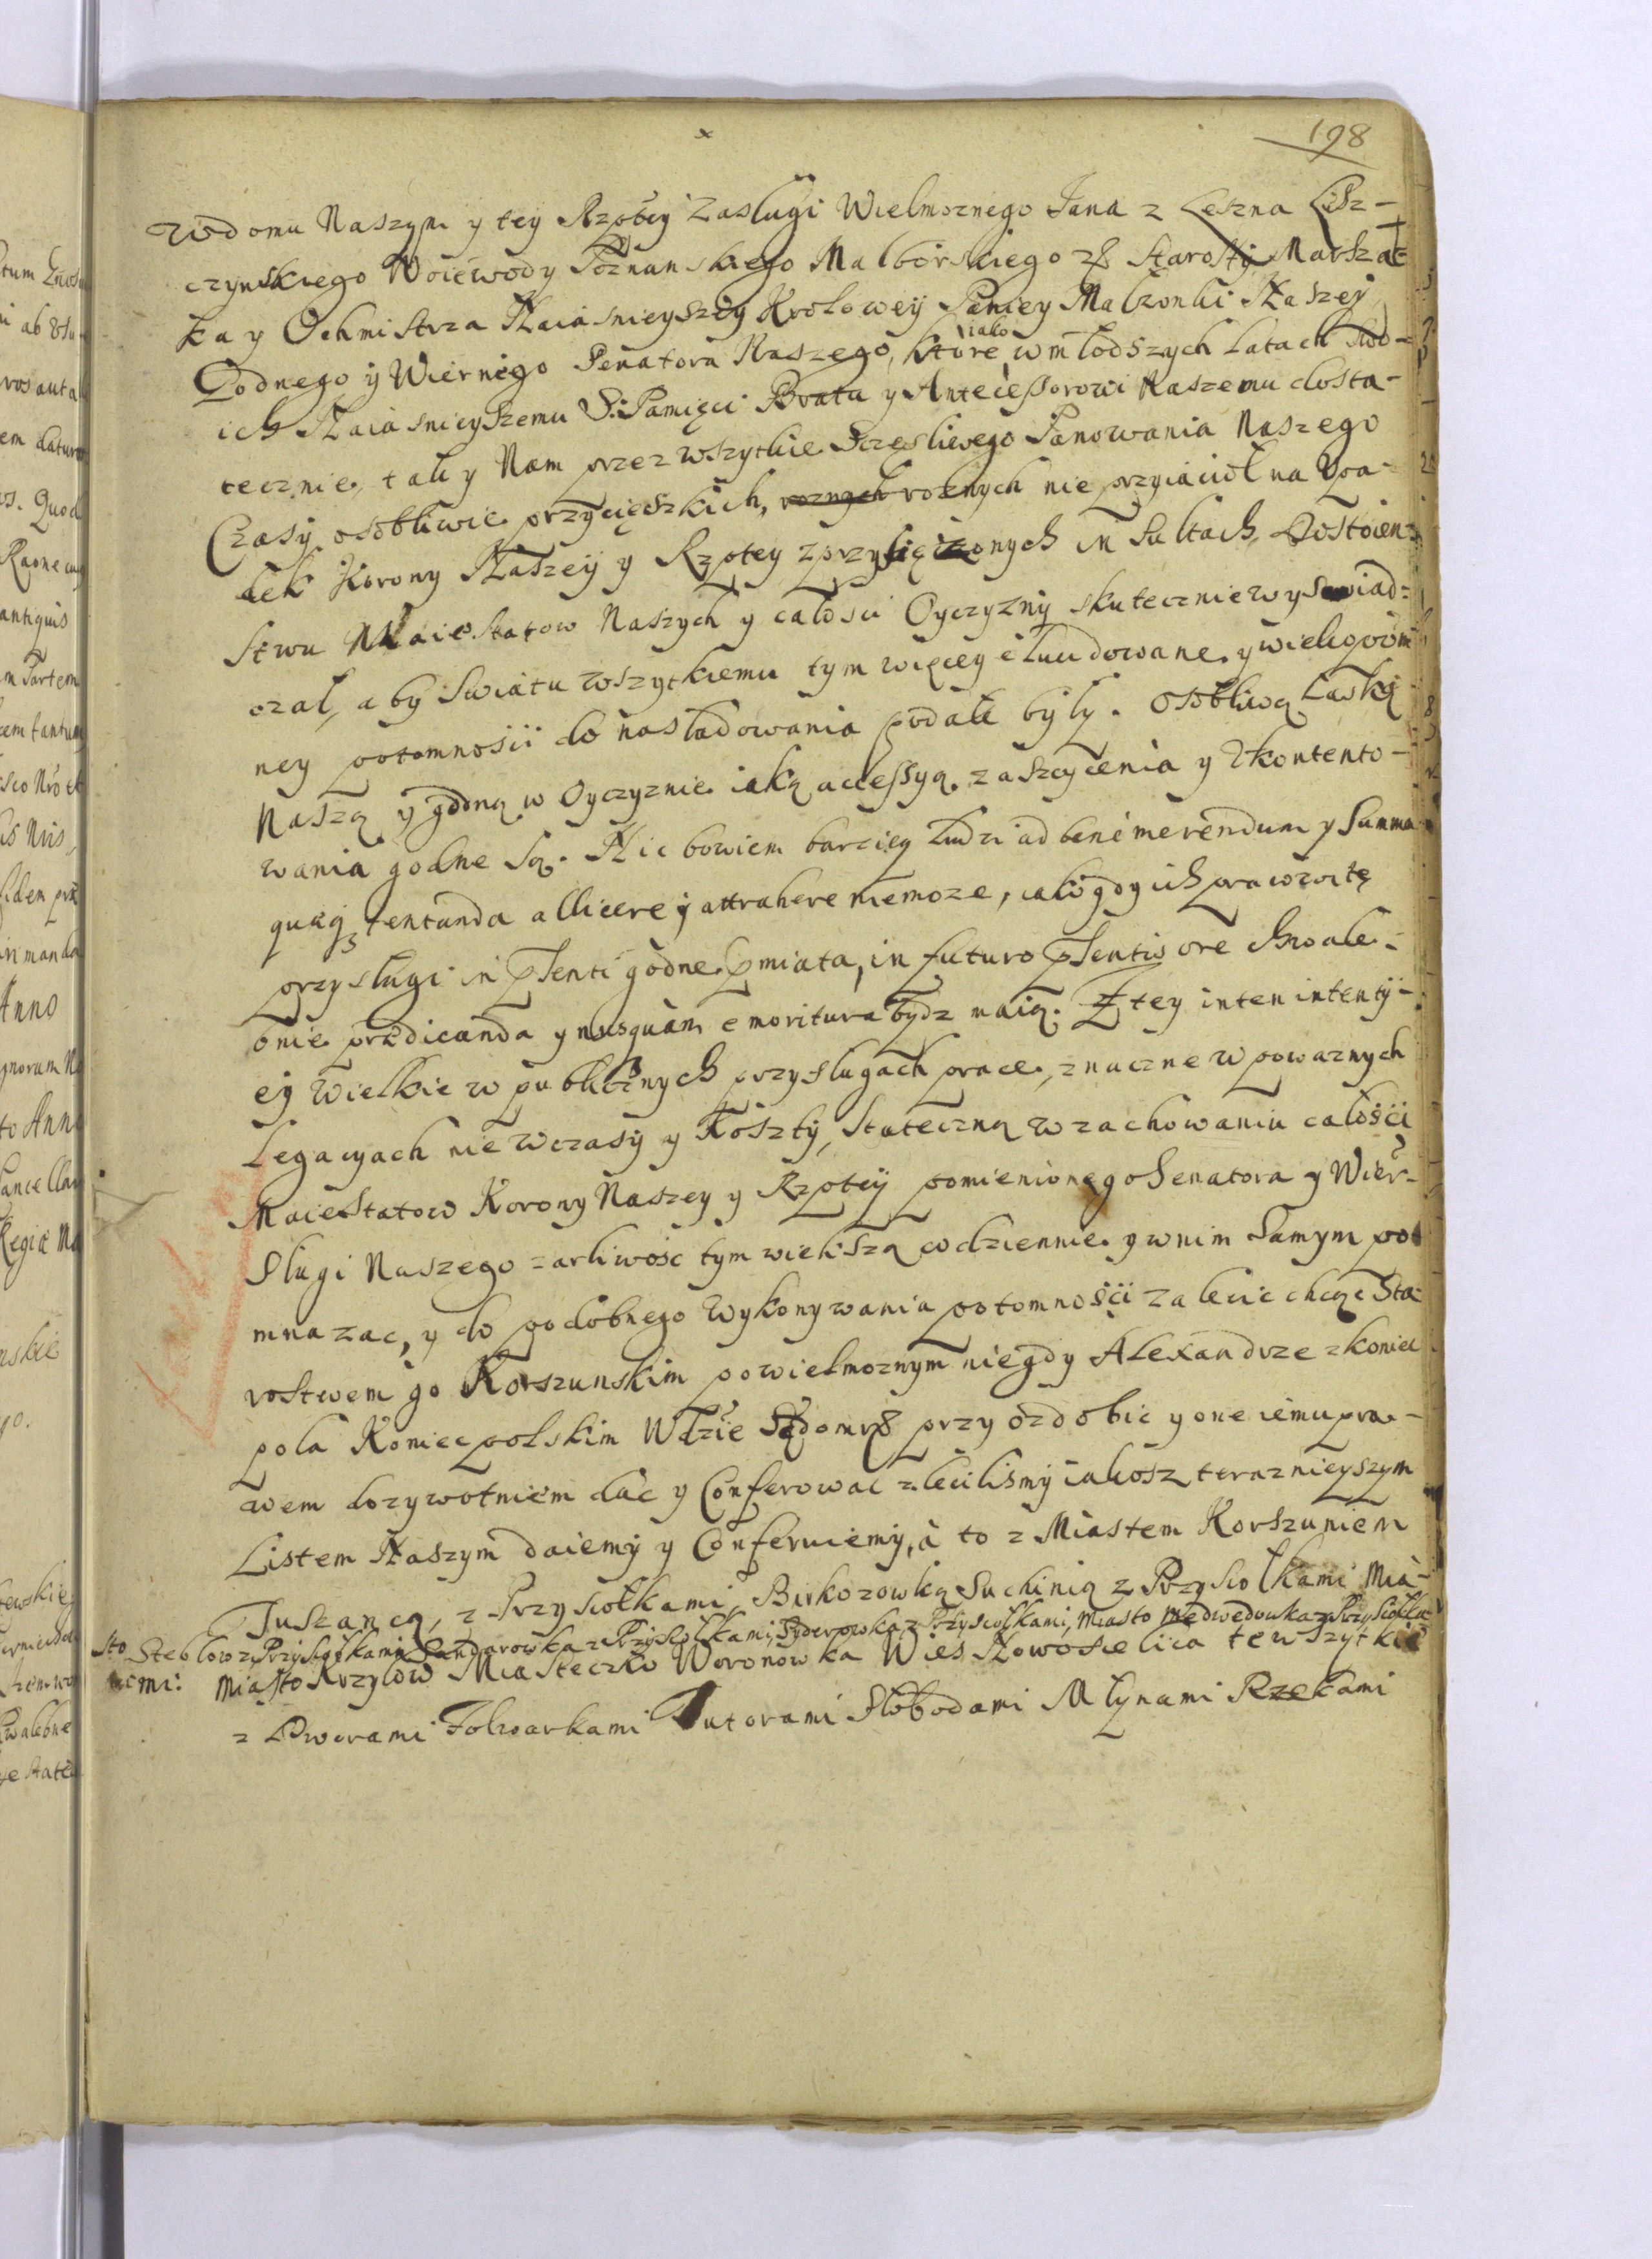 198
Wdomu Naszym y tey Rzptey zasługi Wielmoznego Jana z Leszna Lesz-
czynskiego Woiewody Poznanskiego Malborskiego Starosty Marszał-
ka y Ochmistrza Naiasnieyszey Krolowey Paniey Małzonki Naszey
Godnego y Wiernego Senatora Naszego, ktore iako w młodszych latach swo-
ich Naiasnieyszemu S. Pamięci Bratu y Antecessorowi Naszemu dosta-
tecznie, tak y Nam przez wszytkie Sczęsliwego Panowania Naszego
Czasy osobliwie przycięszkich, roznych roznych nie przyiacioł na Upa-
dek Korony Naszey y Rzptey zprzysiężonych in sultach, Dostoien-
stwu Maiestatow Naszych y całosci Oyczyzny skutecznie wyswiad-
czał, aby swiatu wszytkiemu tym więcey elucidowane y wiekopom
ney potomnosci do nasladowania podałe były. Osobliwą Łaską
Naszą y godną w Oyczyznie iaką accessyą zaszczycenia y Vkontento-
wania godne są. Nic bowiem barziey ludzi ad bene merendum y summa
quaeq tentanda allicere y attrahere niemoze, iako gdy ich prawowite
przysługi in pſenti godne pmiata, in futuro pſentis ore chwale-
bnie praedicanda y nusquam emoritura bydz maią. Z tey inten intenty-
ey wielkie w publicznych przysługach prace, znaczne w powaznych
Legacyach niewczasy y Koszty, stateczną w zachowaniu całosci
Maiestatow Korony Naszey y Rzptey pomienionego Senatora y Wier-
Sługi Naszego zarliwosc tym wiekszą codziennie y wnim samym pot
mnazac, y do podobnego wykonywania potomnosci zalecic chcąc Sta-
rostwem go Korszunskim po wielmoznym niegdy Alexandrze z Koniec
pola Koniecpolskim Wdzie Sędomr przyozdobic y one iemu pra-
wem dozywotniem dac y Conferowac zleciliśmy iakosz teraznieyszym
Listem Naszym daiemy y Conferuiemy, a to z Miastem Korszuniem
z Przysiołkami, Birkozowką Suchinią z Przysiołkami Mia-
sto Steblow z Przysiołkami Sandarowka z Przysiołkami, Syderowka z Przysiołkami, Miasto Medwedowka z Przysiołka
mi: Miasto Krzyłow Miasteczko Woronowka Wies Nowosielica te wszytkie
z Dworami Folwarkami Futorami Słobodami Młynami Rzekami